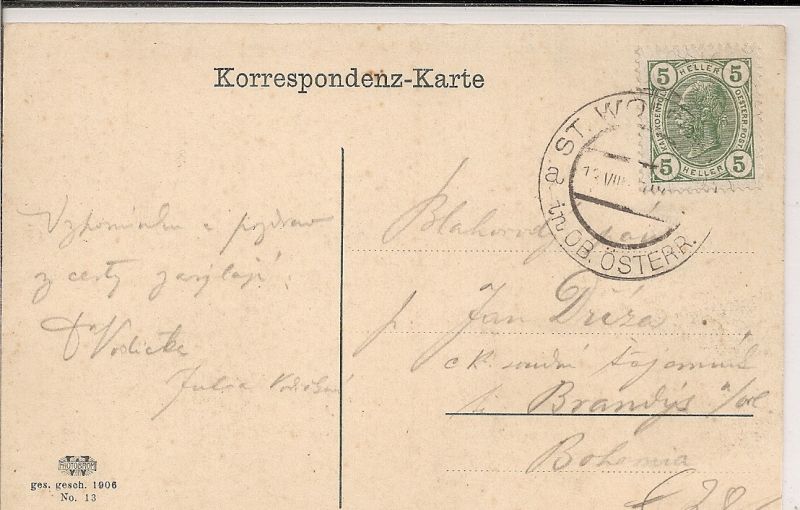 Korrespondenz-Karte
5 HELLER 5
KAIS.KOENIGL. OESTERR.POST
5 HELLER 5
ST. WO
a in OB. ÖSTERR.
Vzpomínku a pozdrav
z cesty zasýlají
Vodička
Julia
Blahorodý pán
p. Jan Dříza
c k soudní tajemník
Brandýs n/
Bohemia
PHOTOBROM
ges. gesch. 1906
No. 13